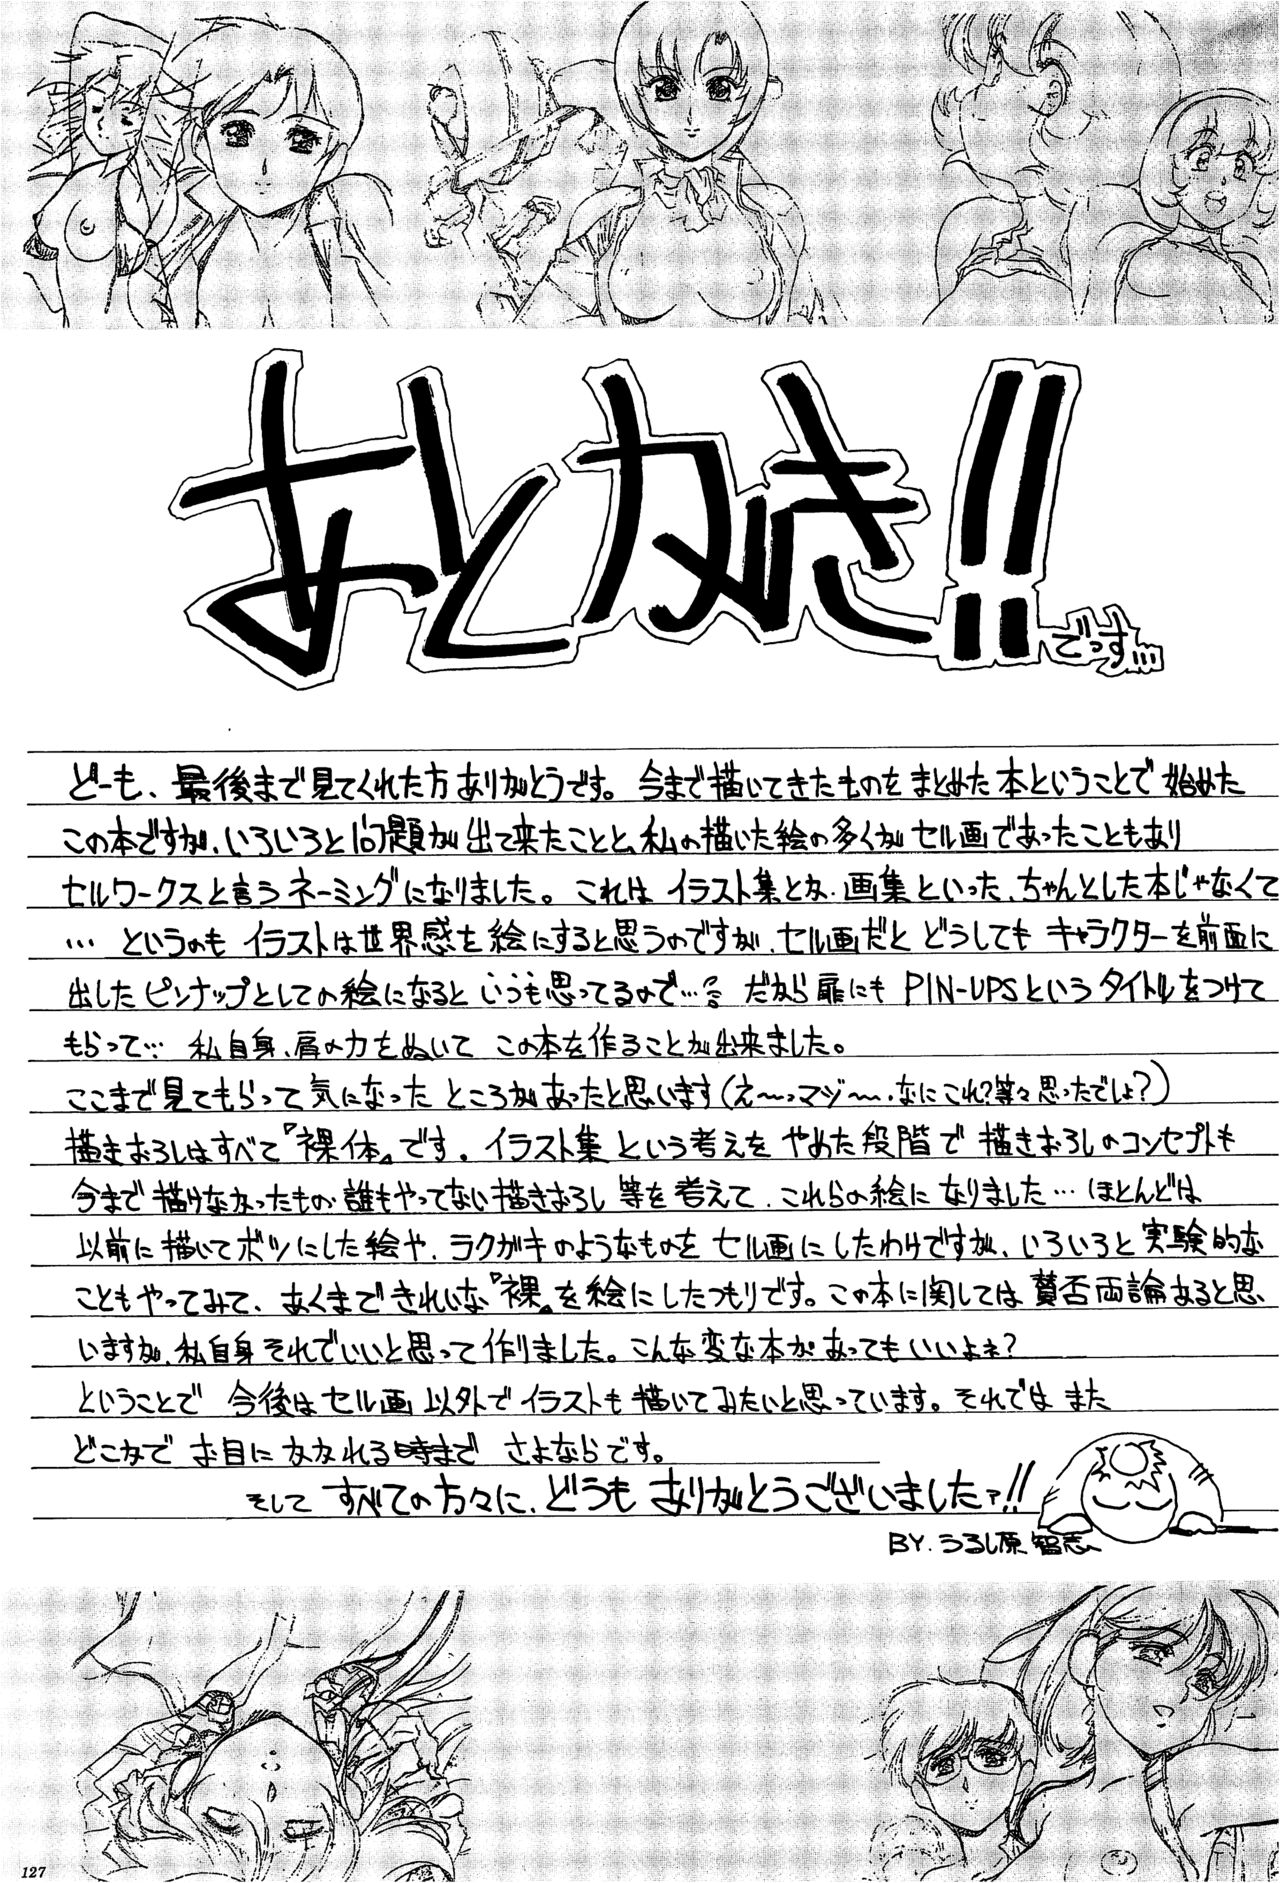 あとがき!!
でっす…
どーも、最後まで見てくれた方ありがとうです。今まで描いてきたものをまとめた本ということで始めた
この本ですが、いろいろと問題が出て来たことと、私の描いた絵の多くがセル画であったこともあり
セルワークスと言うネーミングになりました。これはイラスト集とか・画集といった、ちゃんとした本じゃなくて
… というのもイラストは世界感を絵にすると思うのですが、セル画だとどうしてもキャラクターを前面に
出したピンナップとしての絵になるといつも思ってるので… だから扉にもPIN-UPSというタイトルをつけて
もらって… 私自身、肩の力をぬいてこの本を作ることが出来ました。
ここまで見てもらって気になったところがあったと思います(え〜っマジ〜、なにこれ?等々思ったでしょ?)
描きおろしはすべて『裸体』です。イラスト集という考えをやめた段階で描きおろしのコンセプトも
今まで描けなかったもの・誰もやってない描きおろし等を考えて、これらの絵になりました…ほとんどは
以前に描いてボツにした絵や、ラクガキのようなものをセル画にしたわけですが、いろいろと実験的な
こともやってみて、あくまできれいな『裸』を絵にしたつもりです。この本に関しては賛否両論あると思
いますが、私自身それでいいと思って作りました。こんな変な本があってもいいよネ?
ということで今後はセル画以外でイラストも描いてみたいと思っています。それではまた
どこかでお目にかかれる時まで さよならです。
そして すべての方々に、どうもありがとうございましたァ!!
BY. うるし原 智志
127